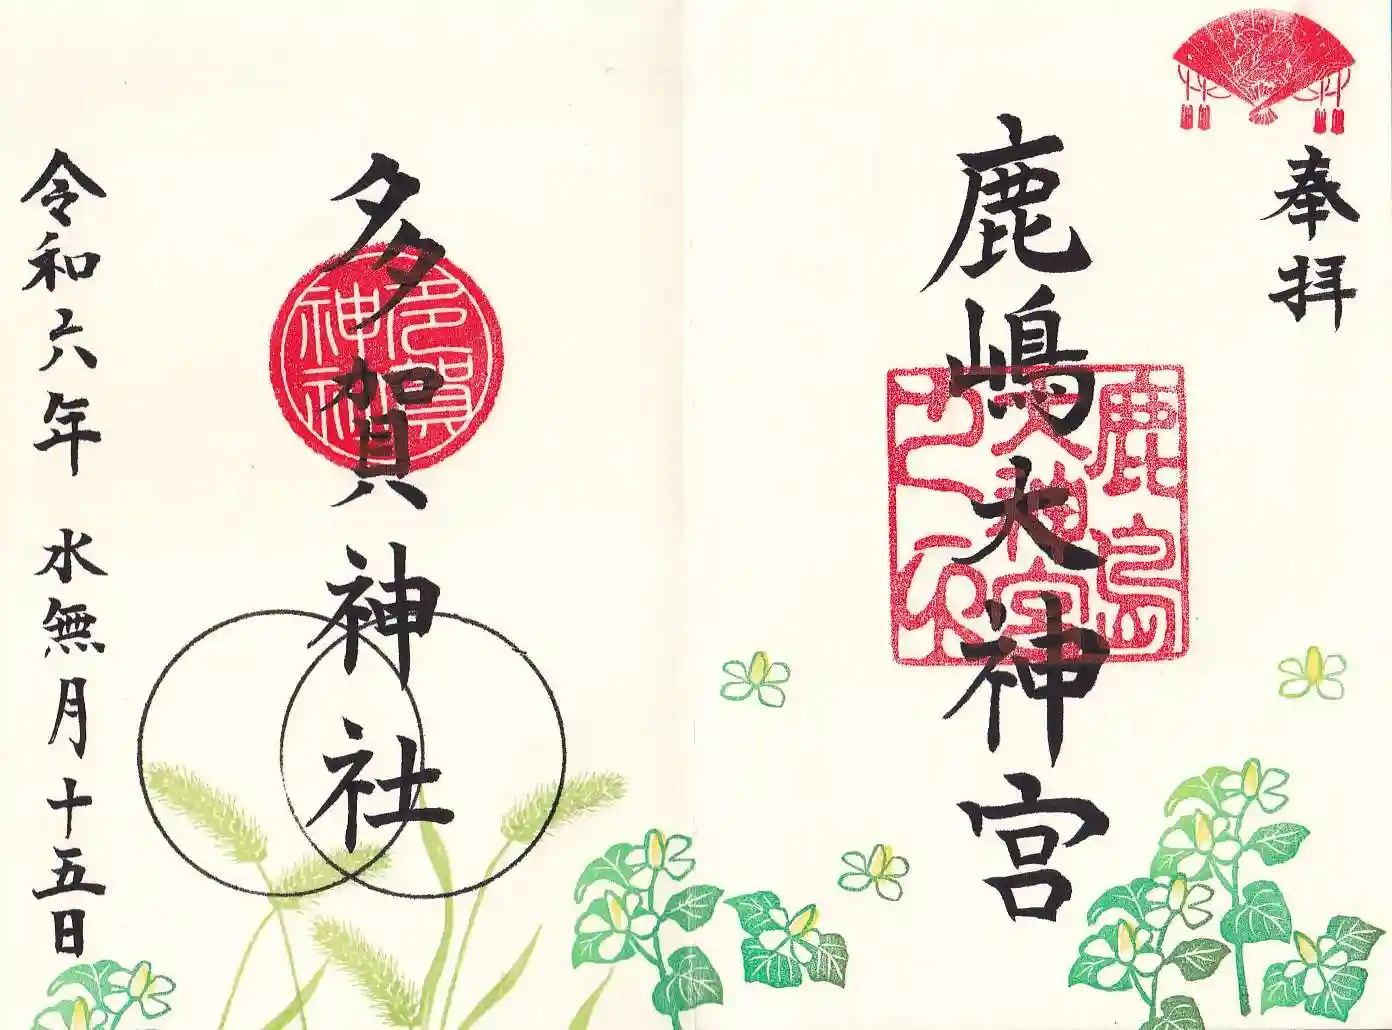 奉拝
鹿嶋大神宮
鹿島
大神宮
多賀神社
多賀
神社
令和六年 水無月十五日